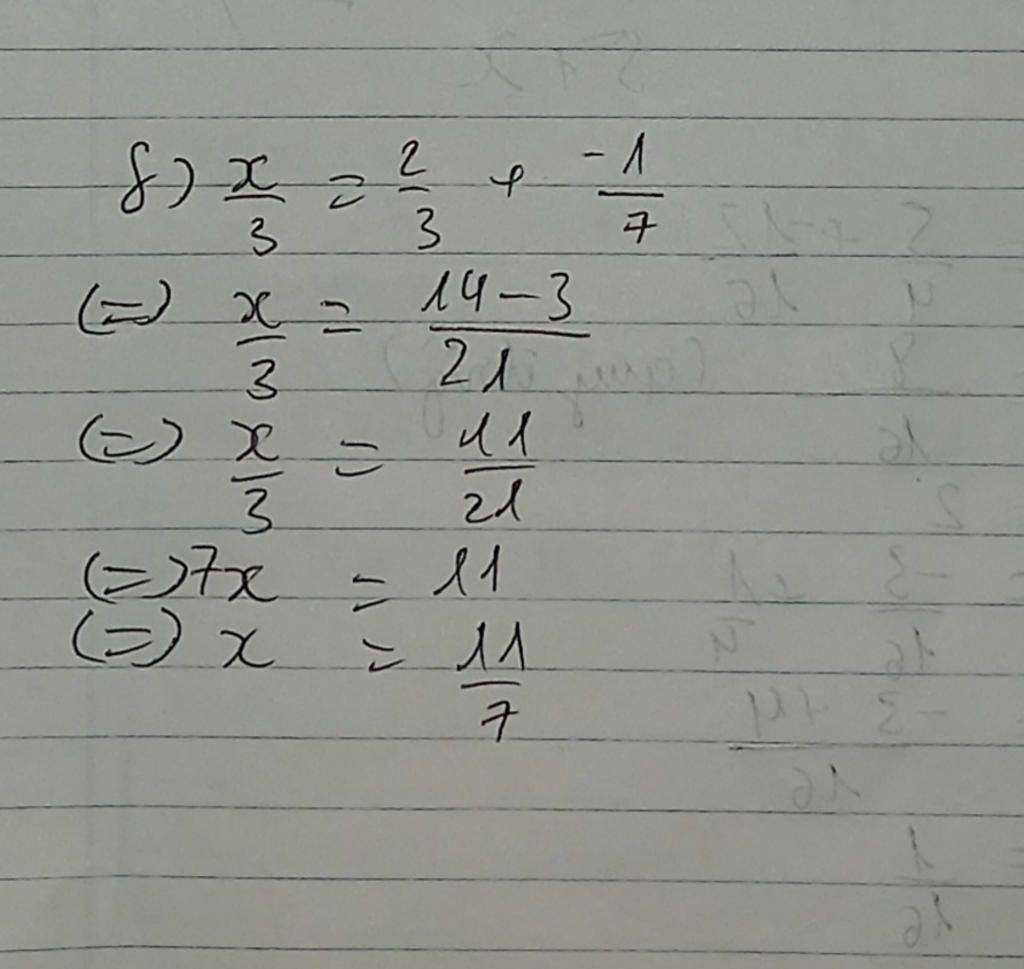 f) x/3 = 2/3 + -1/7
(=) x/3 = 14-3/21
(=) x/3 = 11/21
(=) 7x = 11
(=) x = 11/7